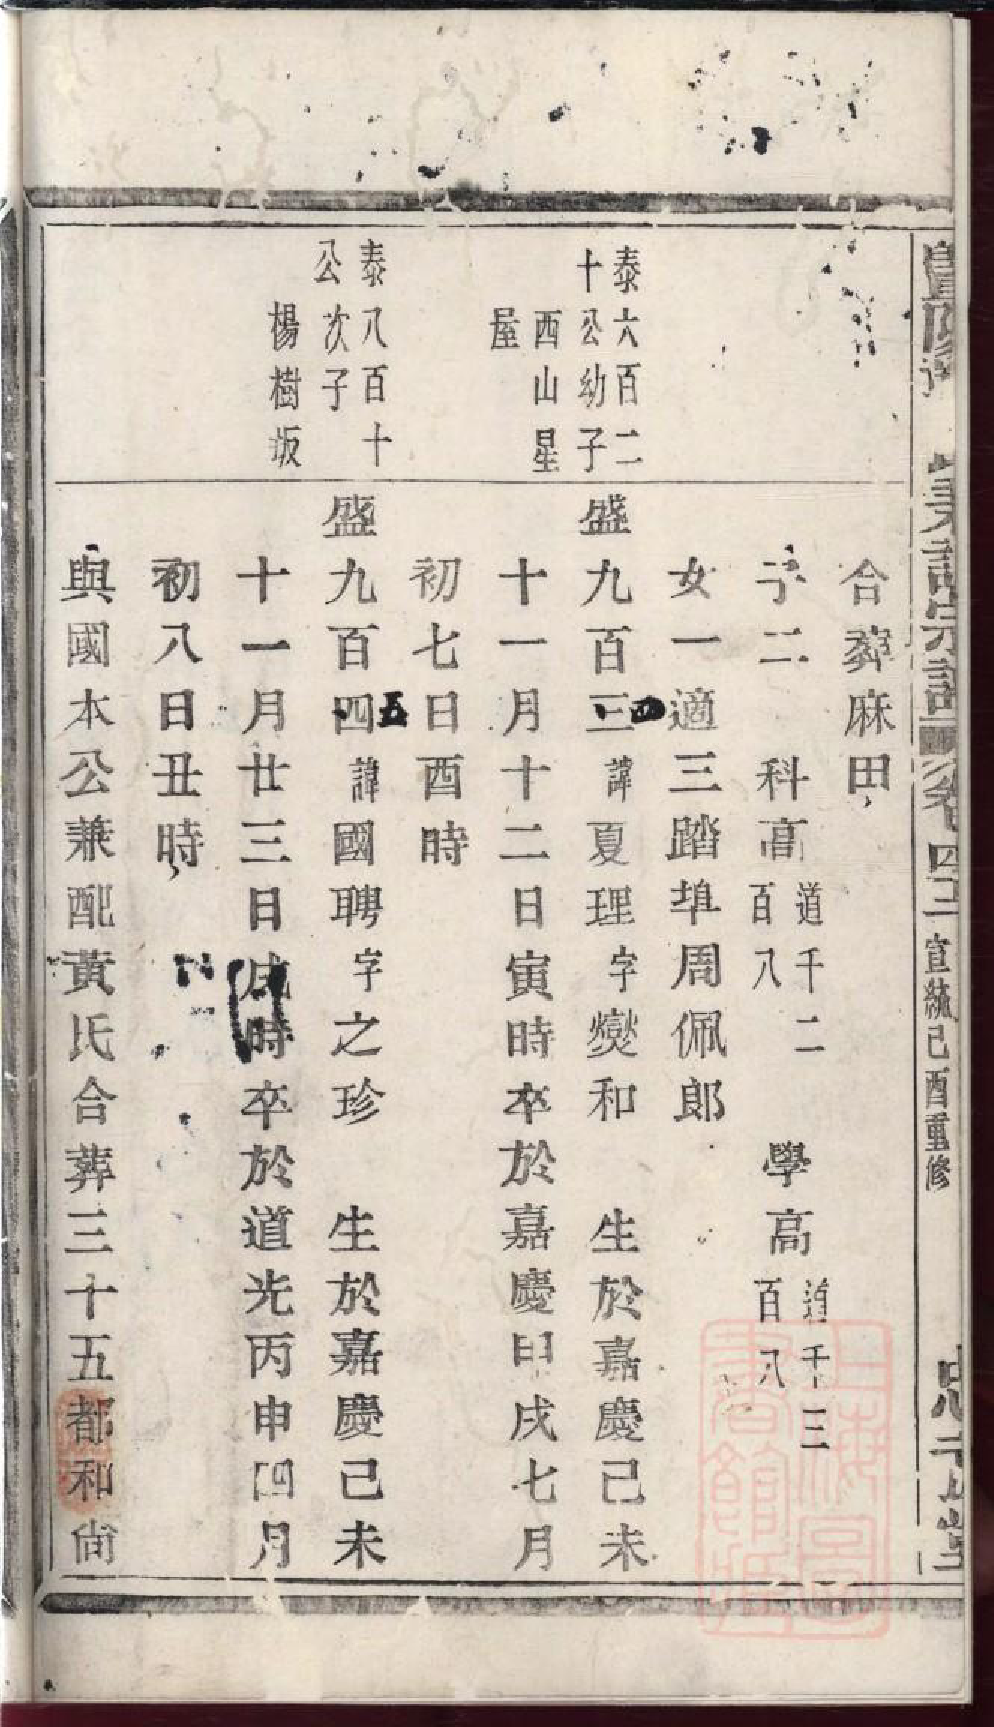 合葬麻田
子二 科高 道千二百八 學高 道千三百八
女一適三踏埠周佩郎
泰六百二
十公幼子
西山星
屋
盛九百三四諱夏理字燮和 生於嘉慶己未
十一月十二日寅時卒於嘉慶甲戌七月
初七日酉時
泰八百十
公次子
楊樹坂
盛九百四五諱國聘字之珍 生於嘉慶己未
十一月廿三日戌時卒於道光丙申四月
初八日丑時
與國本公兼配黃氏合葬三十五都和尙
暨陽 宗譜 卷四 宣統己酉重修
上海圖書館藏